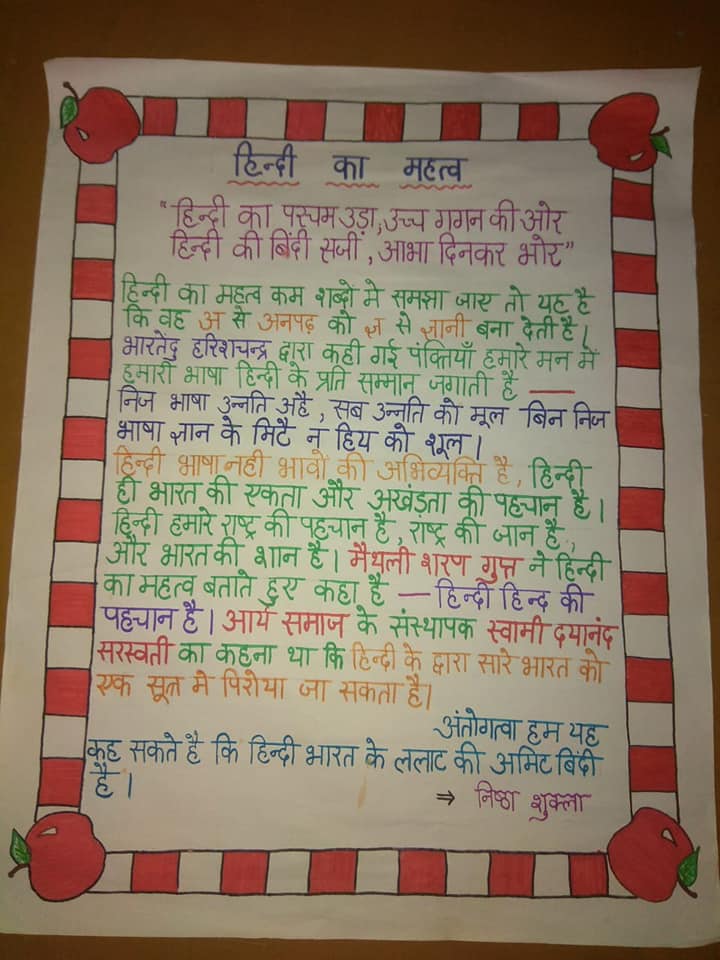 हिन्दी का महत्व
"हिन्दी का परचम उड़ा, उच्च गगन की ओर
हिन्दी की बिंदी सजी, आभा दिनकर भोर"
हिन्दी का महत्व कम शब्दो मे समझा जाए तो यह है
कि वह अ से अनपढ़ को ज्ञ से ज्ञानी बना देती है।
भारतेंदु हरिशचन्द्र द्वारा कही गई पंक्तियाँ हमारे मन में
हमारी भाषा हिन्दी के प्रति सम्मान जगाती है —
निज भाषा उन्नति अहै, सब उन्नति को मूल बिन निज
भाषा ज्ञान के मिटै न हिय को शूल।
हिन्दी भाषा नही भावों की अभिव्यक्ति है, हिन्दी
ही भारत की एकता और अखंड़ता की पहचान है।
हिन्दी हमारे राष्ट्र की पहचान है, राष्ट्र की जान है,
और भारत की शान है। मैथली शरण गुप्त ने हिन्दी
का महत्व बताते हुए कहा है — हिन्दी हिन्द की
पहचान है। आर्य समाज के संस्थापक स्वामी दयानंद
सरस्वती का कहना था कि हिन्दी के द्वारा सारे भारत को
एक सूत्र मे पिरोया जा सकता है।
अंतोगत्वा हम यह
कह सकते है कि हिन्दी भारत के ललाट की अमिट बिंदी
है।
⇒ निष्ठा शुक्ला